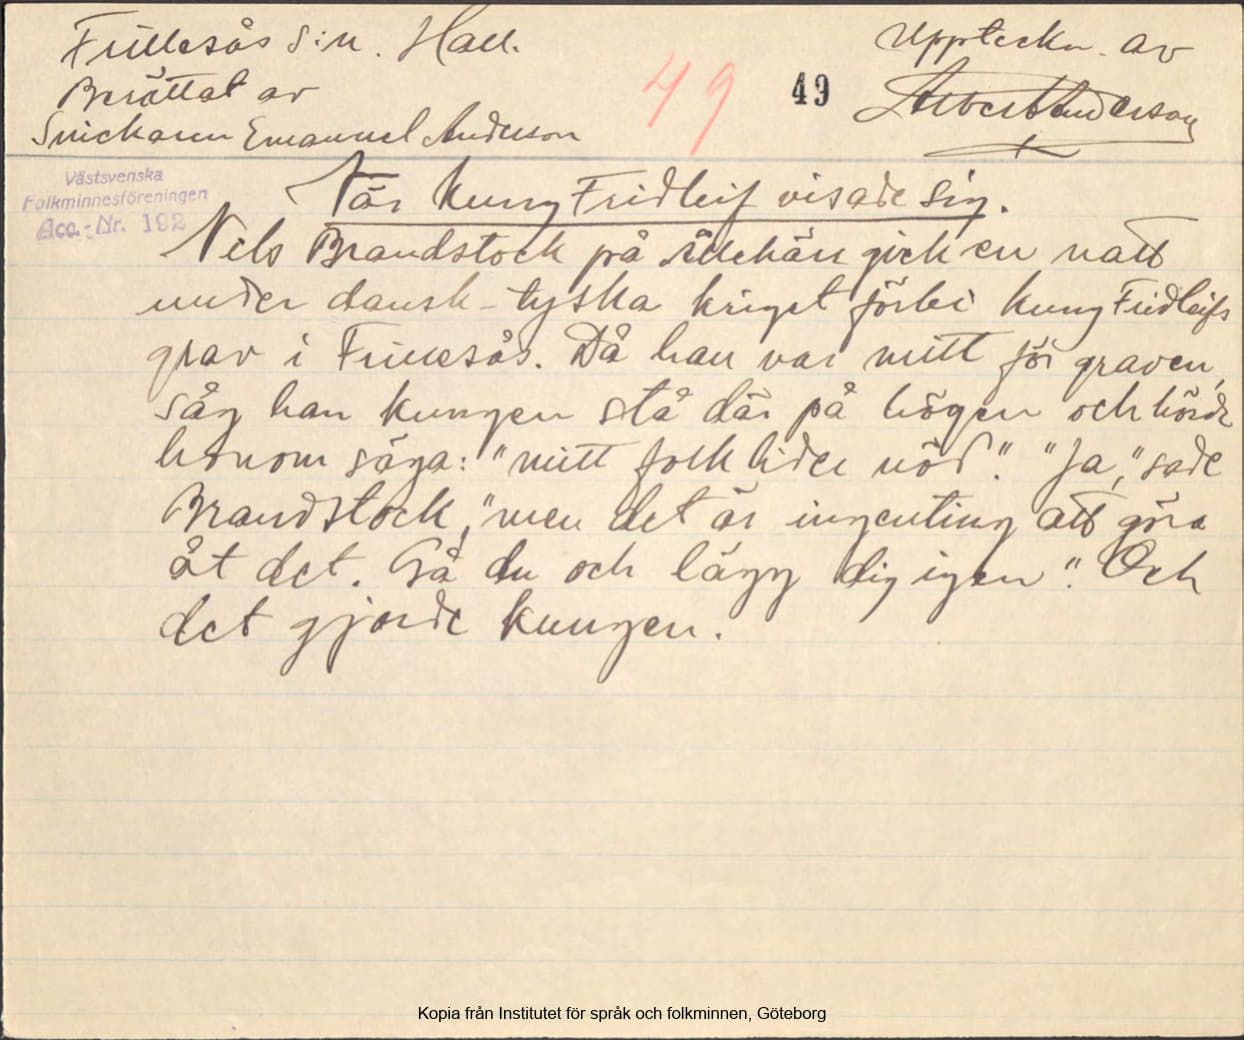 Frillesås s:n. Hall.
Uppteckn. av
Berättat av
49 49
Albert Anderson
Snickaren Emanuel Anderson
Västsvenska
Folkminnesföreningen
Acc.-Nr. 192
När kung Fridleif visade sig.
Nils Brandstock på gick en natt
under dansk-tyska kriget förbi kung Fridleifs
grav i Frillesås. Då han var mitt för graven,
såg han kungen stå där på högen och hörde
honom säga: "mitt folk lider nöd". "Ja," sade
Brandstock, "men det är ingenting att göra
åt det. Gå du och lägg dig igen". Och
det gjorde kungen.
Kopia från Institutet för språk och folkminnen, Göteborg